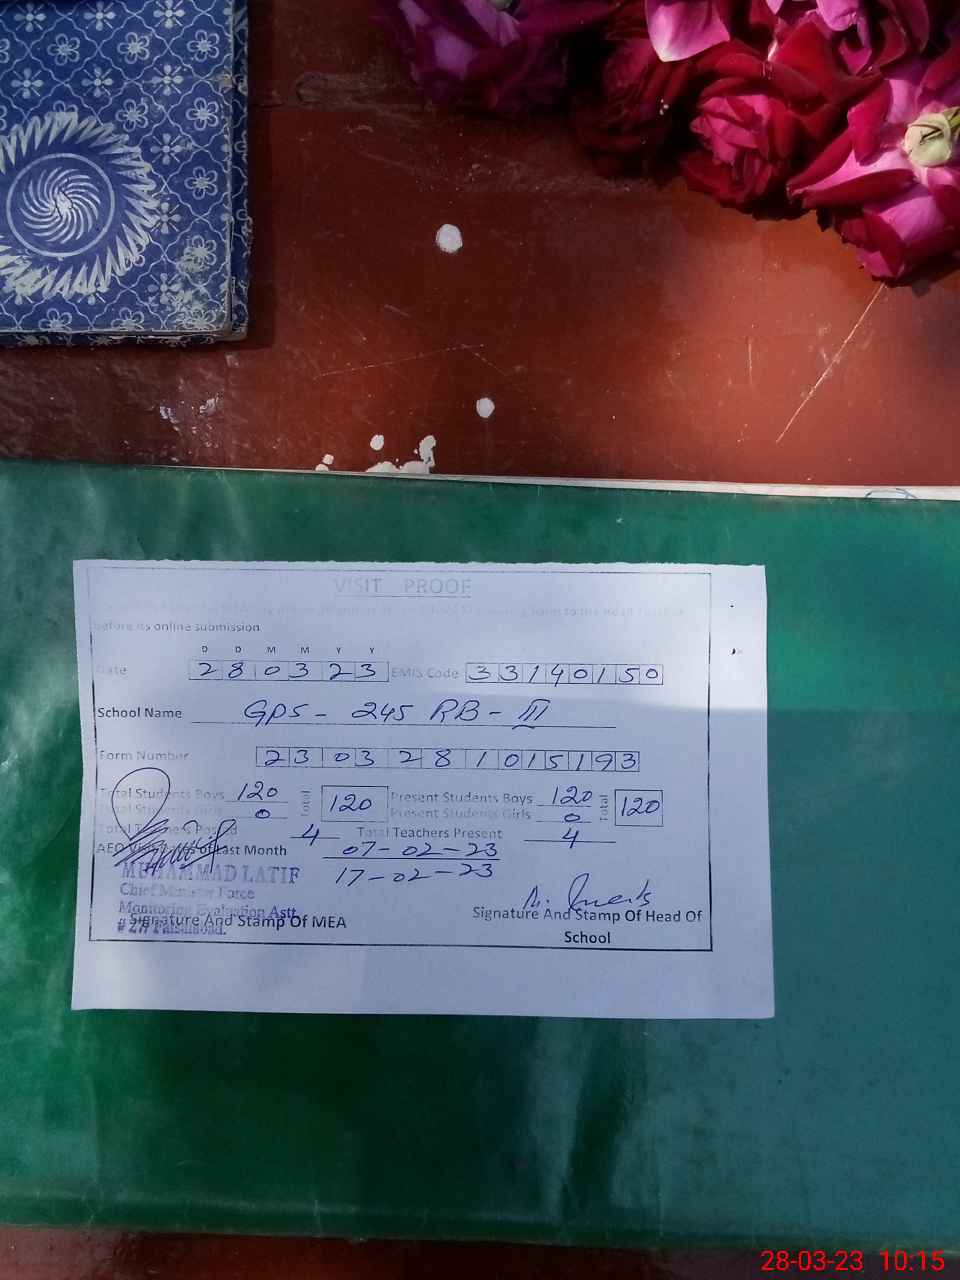 VISIT PROOF
form to the Head Teacher
before its online submission
D D M M Y Y
Date 280323 EMIS Code 33140150
School Name GPS - 245 RB - III
Form Number 2303281015193
Total Students Boys 120 Total 120 Present Students Boys 120 Total 120
Total Students Girls 0 Present Students Girls 0
Total Teachers Posted 4 Total Teachers Present 4
AEO Visit Dates of Last Month 07-02-23
17-02-23
MUHAMMAD LATIF
Chief Minister Force
Monitoring Evaluation Astt
# 277 Faisalabad.
Signature And Stamp Of MEA
Signature And Stamp Of Head Of
School
28-03-23 10:15